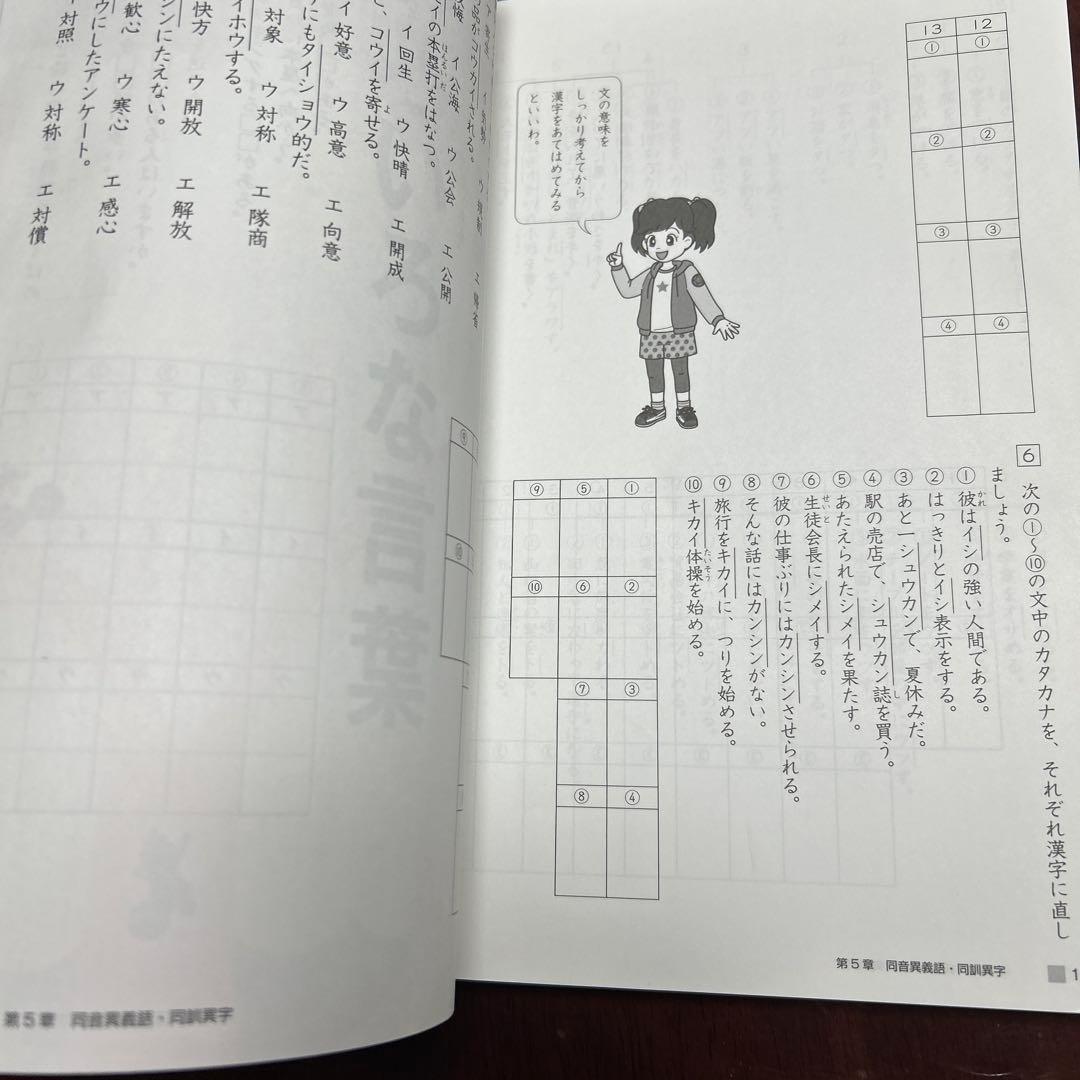 12
①
②
③
④
13
①
②
③
④
文の意味を
しっかり考えてから
漢字をあてはめてみる
といいわ。
6 次の①〜⑩の文中のカタカナを、それぞれ漢字に直し
ましょう。
① 彼はイシの強い人間である。
かれ
② はっきりとイシ表示をする。
③ あと一シュウカンで、夏休みだ。
④ 駅の売店で、シュウカン誌を買う。
し
⑤ あたえられたシメイを果たす。
⑥ 生徒会長にシメイする。
せいと
⑦ 彼の仕事ぶりにはカンシンさせられる。
⑧ そんな話にはカンシンがない。
⑨ 旅行をキカイに、つりを始める。
⑩ キカイ体操を始める。
たいそう
①
②
③
④
⑤
⑥
⑦
⑧
⑨
⑩
第5章 同音異義語・同訓異字
1
エ 帰省
イ 公海 ウ 公会 エ 公開
品がコウカイされる。
イの本塁打をはなつ。
ほんるいだ
イ 回生 ウ 快晴 エ 開成
、コウイを寄せる。
よ
イ 好意 ウ 高意 エ 向意
りにもタイショウ的だ。
対象 ウ 対称 エ 隊商
イホウする。
快方 ウ 開放 エ 解放
シンにたえない。
歓心 ウ 寒心 エ 感心
ウにしたアンケート。
イ 対照 ウ 対称 エ 対償
第5章 同音異義語・同訓異字